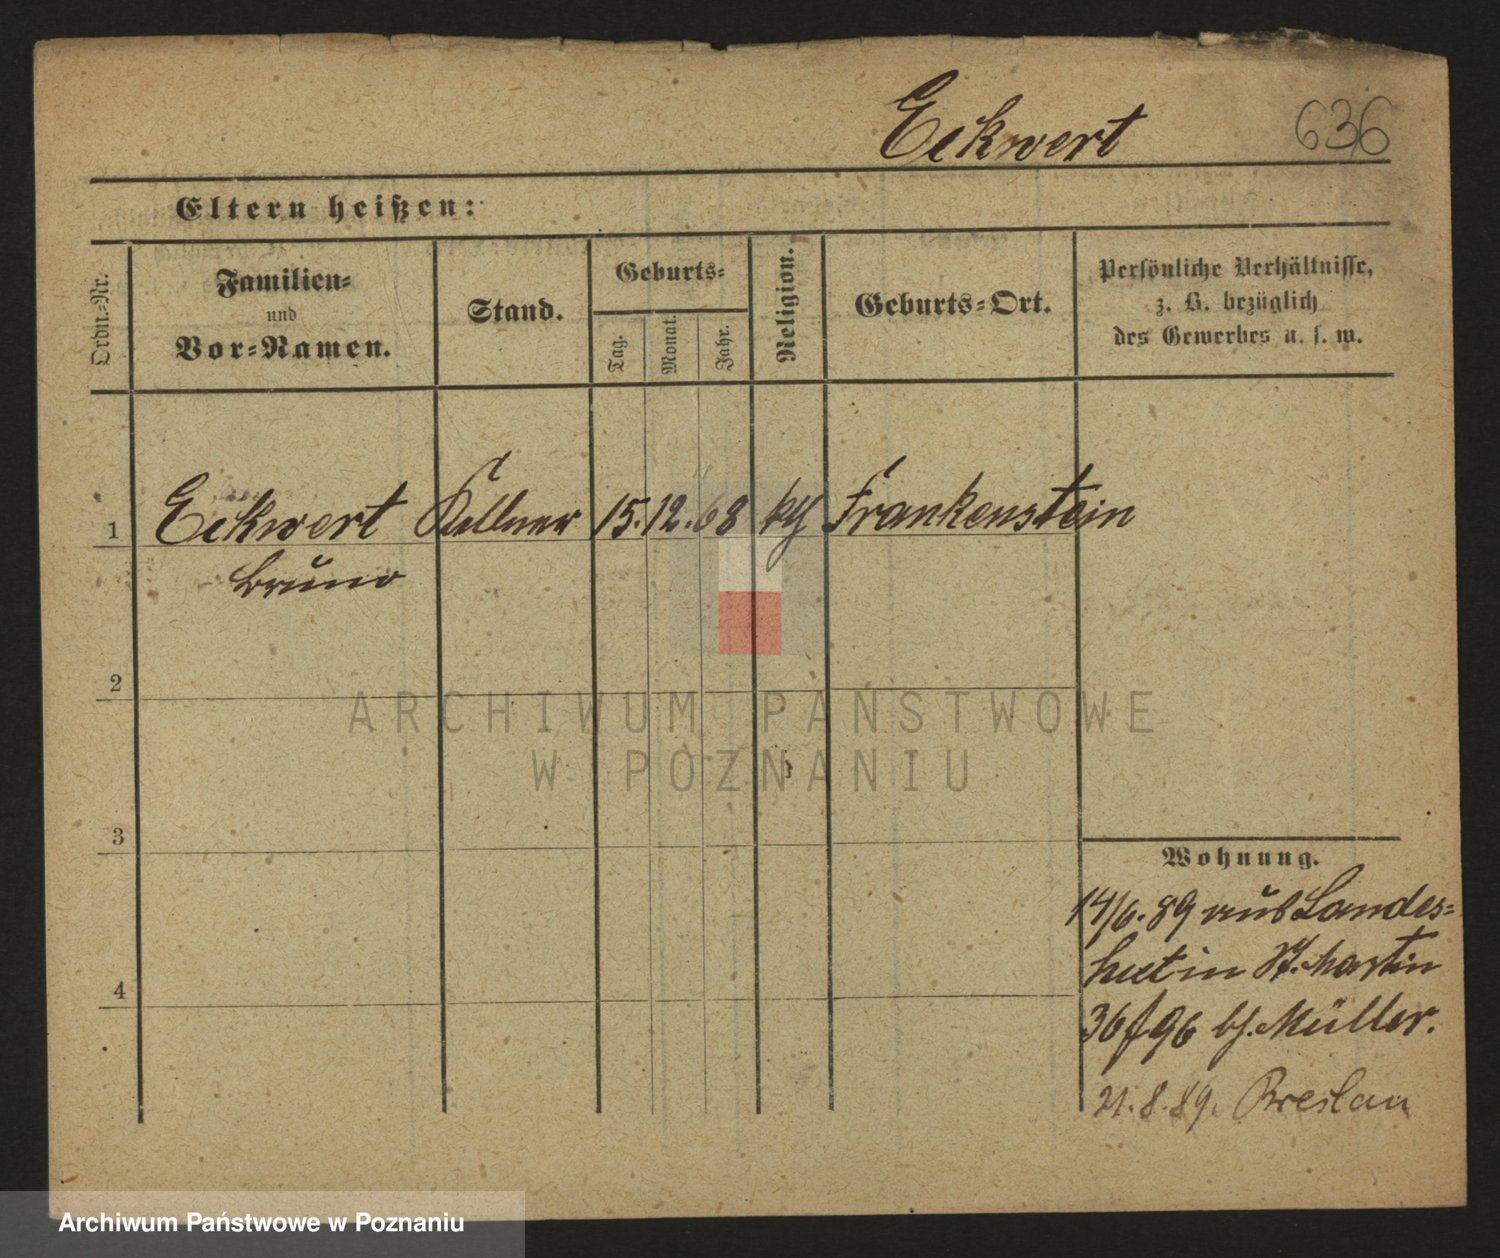 Eckwert 636
Eltern heißen:
Ordn.-Nr.
Familien-
und
Vor-Namen.
Stand.
Geburts-
Tag.
Monat.
Jahr.
Religion.
Geburts-Ort.
Persönliche Verhältnisse,
z. B. bezüglich
des Gewerbes u. s. w.
1 Eckwert Kellner 15. 12. 68 kth Frankenstein
Bruno
2
3
4
Wohnung.
14/6. 89 aus Landes=
hut in St. Martin
36 f 96 bj. Müller.
21. 8. 89. Breslau
ARCHIWUM PAŃSTWOWE
W POZNANIU
Archiwum Państwowe w Poznaniu